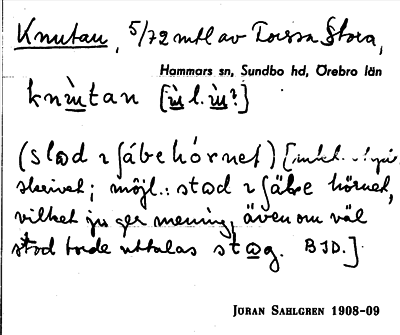 Knutan, 5/72 mtl av Torssa Stora,
Hammars sn, Sundbo hd, Örebro län
knùtan [ù l. ù?]
(stod ı sjábehórnet) [
skrivet; möjl.: stod ı sjäbe hörnet,
vilket ju ger mening, även om väl
stod torde uttalas stog. BJD.]
JÖRAN SAHLGREN 1908-09